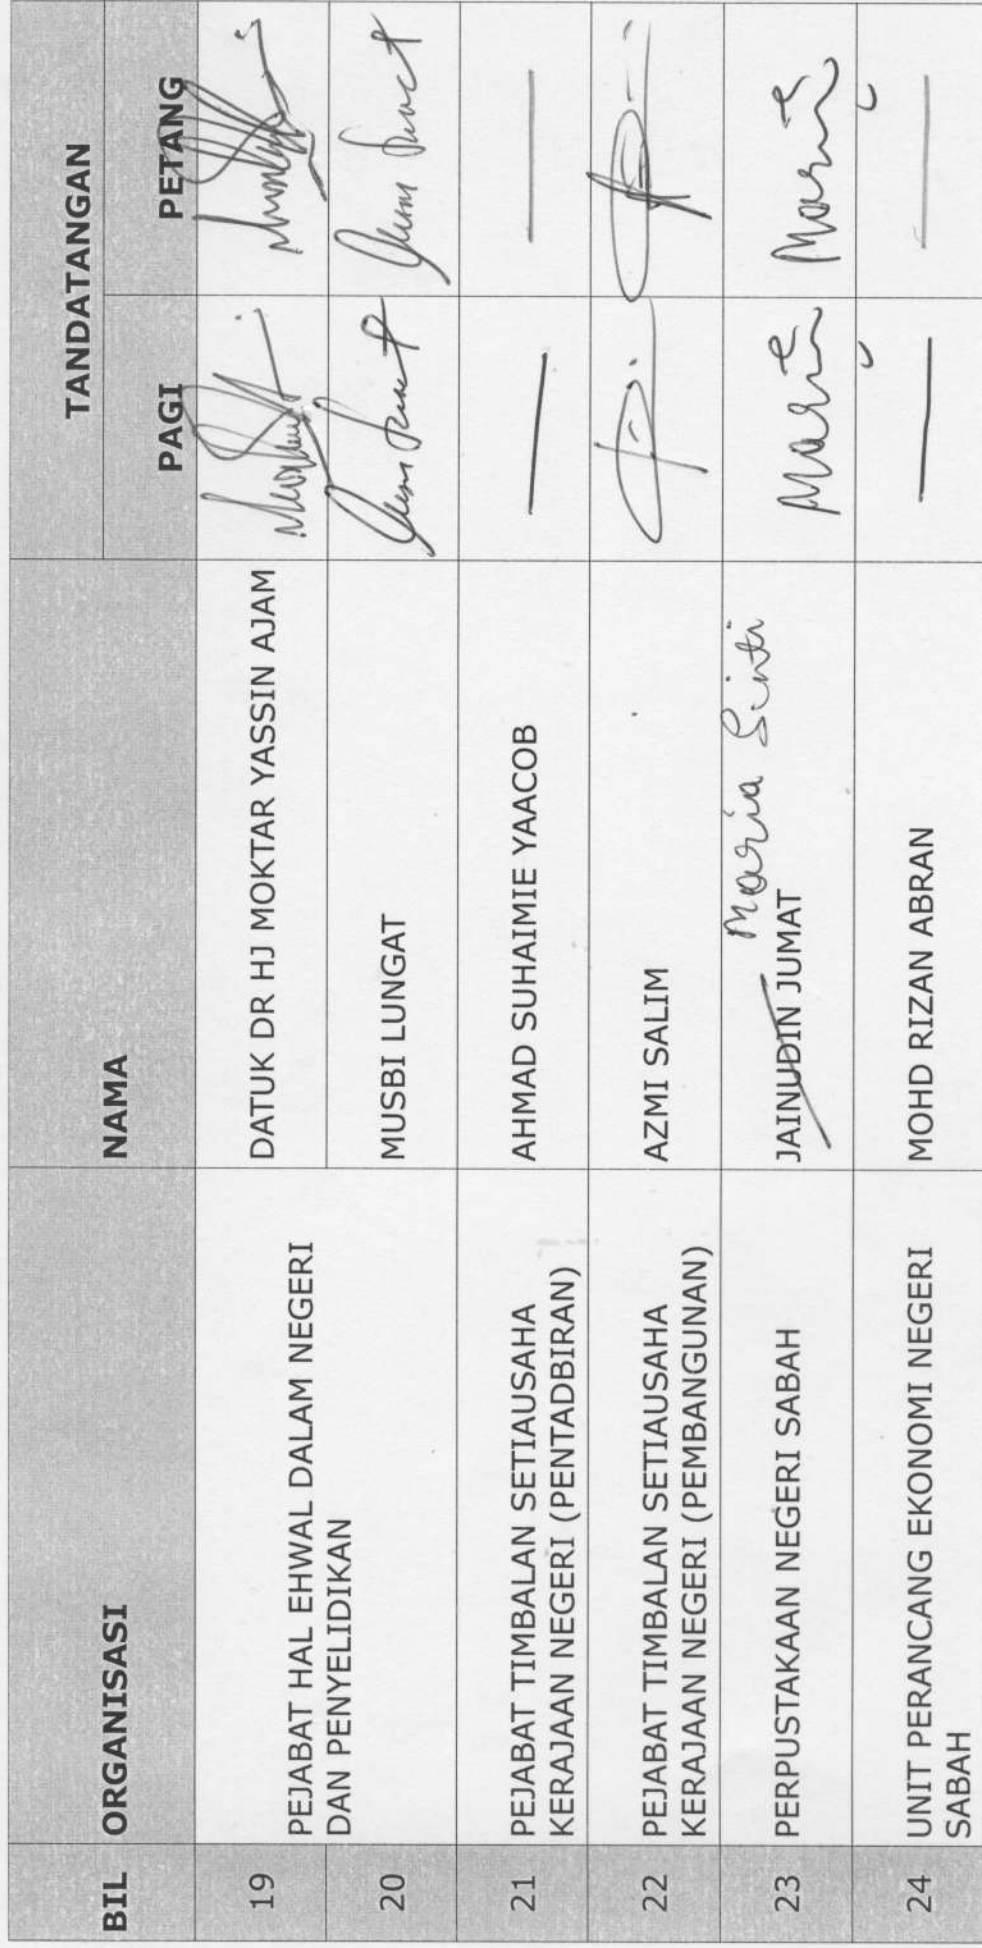 BIL ORGANISASI NAMA TANDATANGAN
PAGI PETANG
19 PEJABAT HAL EHWAL DALAM NEGERI
DAN PENYELIDIKAN
DATUK DR HJ MOKTAR YASSIN AJAM
20 MUSBI LUNGAT
21 PEJABAT TIMBALAN SETIAUSAHA
KERAJAAN NEGERI (PENTADBIRAN)
AHMAD SUHAIMIE YAACOB
22 PEJABAT TIMBALAN SETIAUSAHA
KERAJAAN NEGERI (PEMBANGUNAN)
AZMI SALIM
23 PERPUSTAKAAN NEGERI SABAH
Maria Sinti
JAINUDIN JUMAT
24 UNIT PERANCANG EKONOMI NEGERI
SABAH
MOHD RIZAN ABRAN